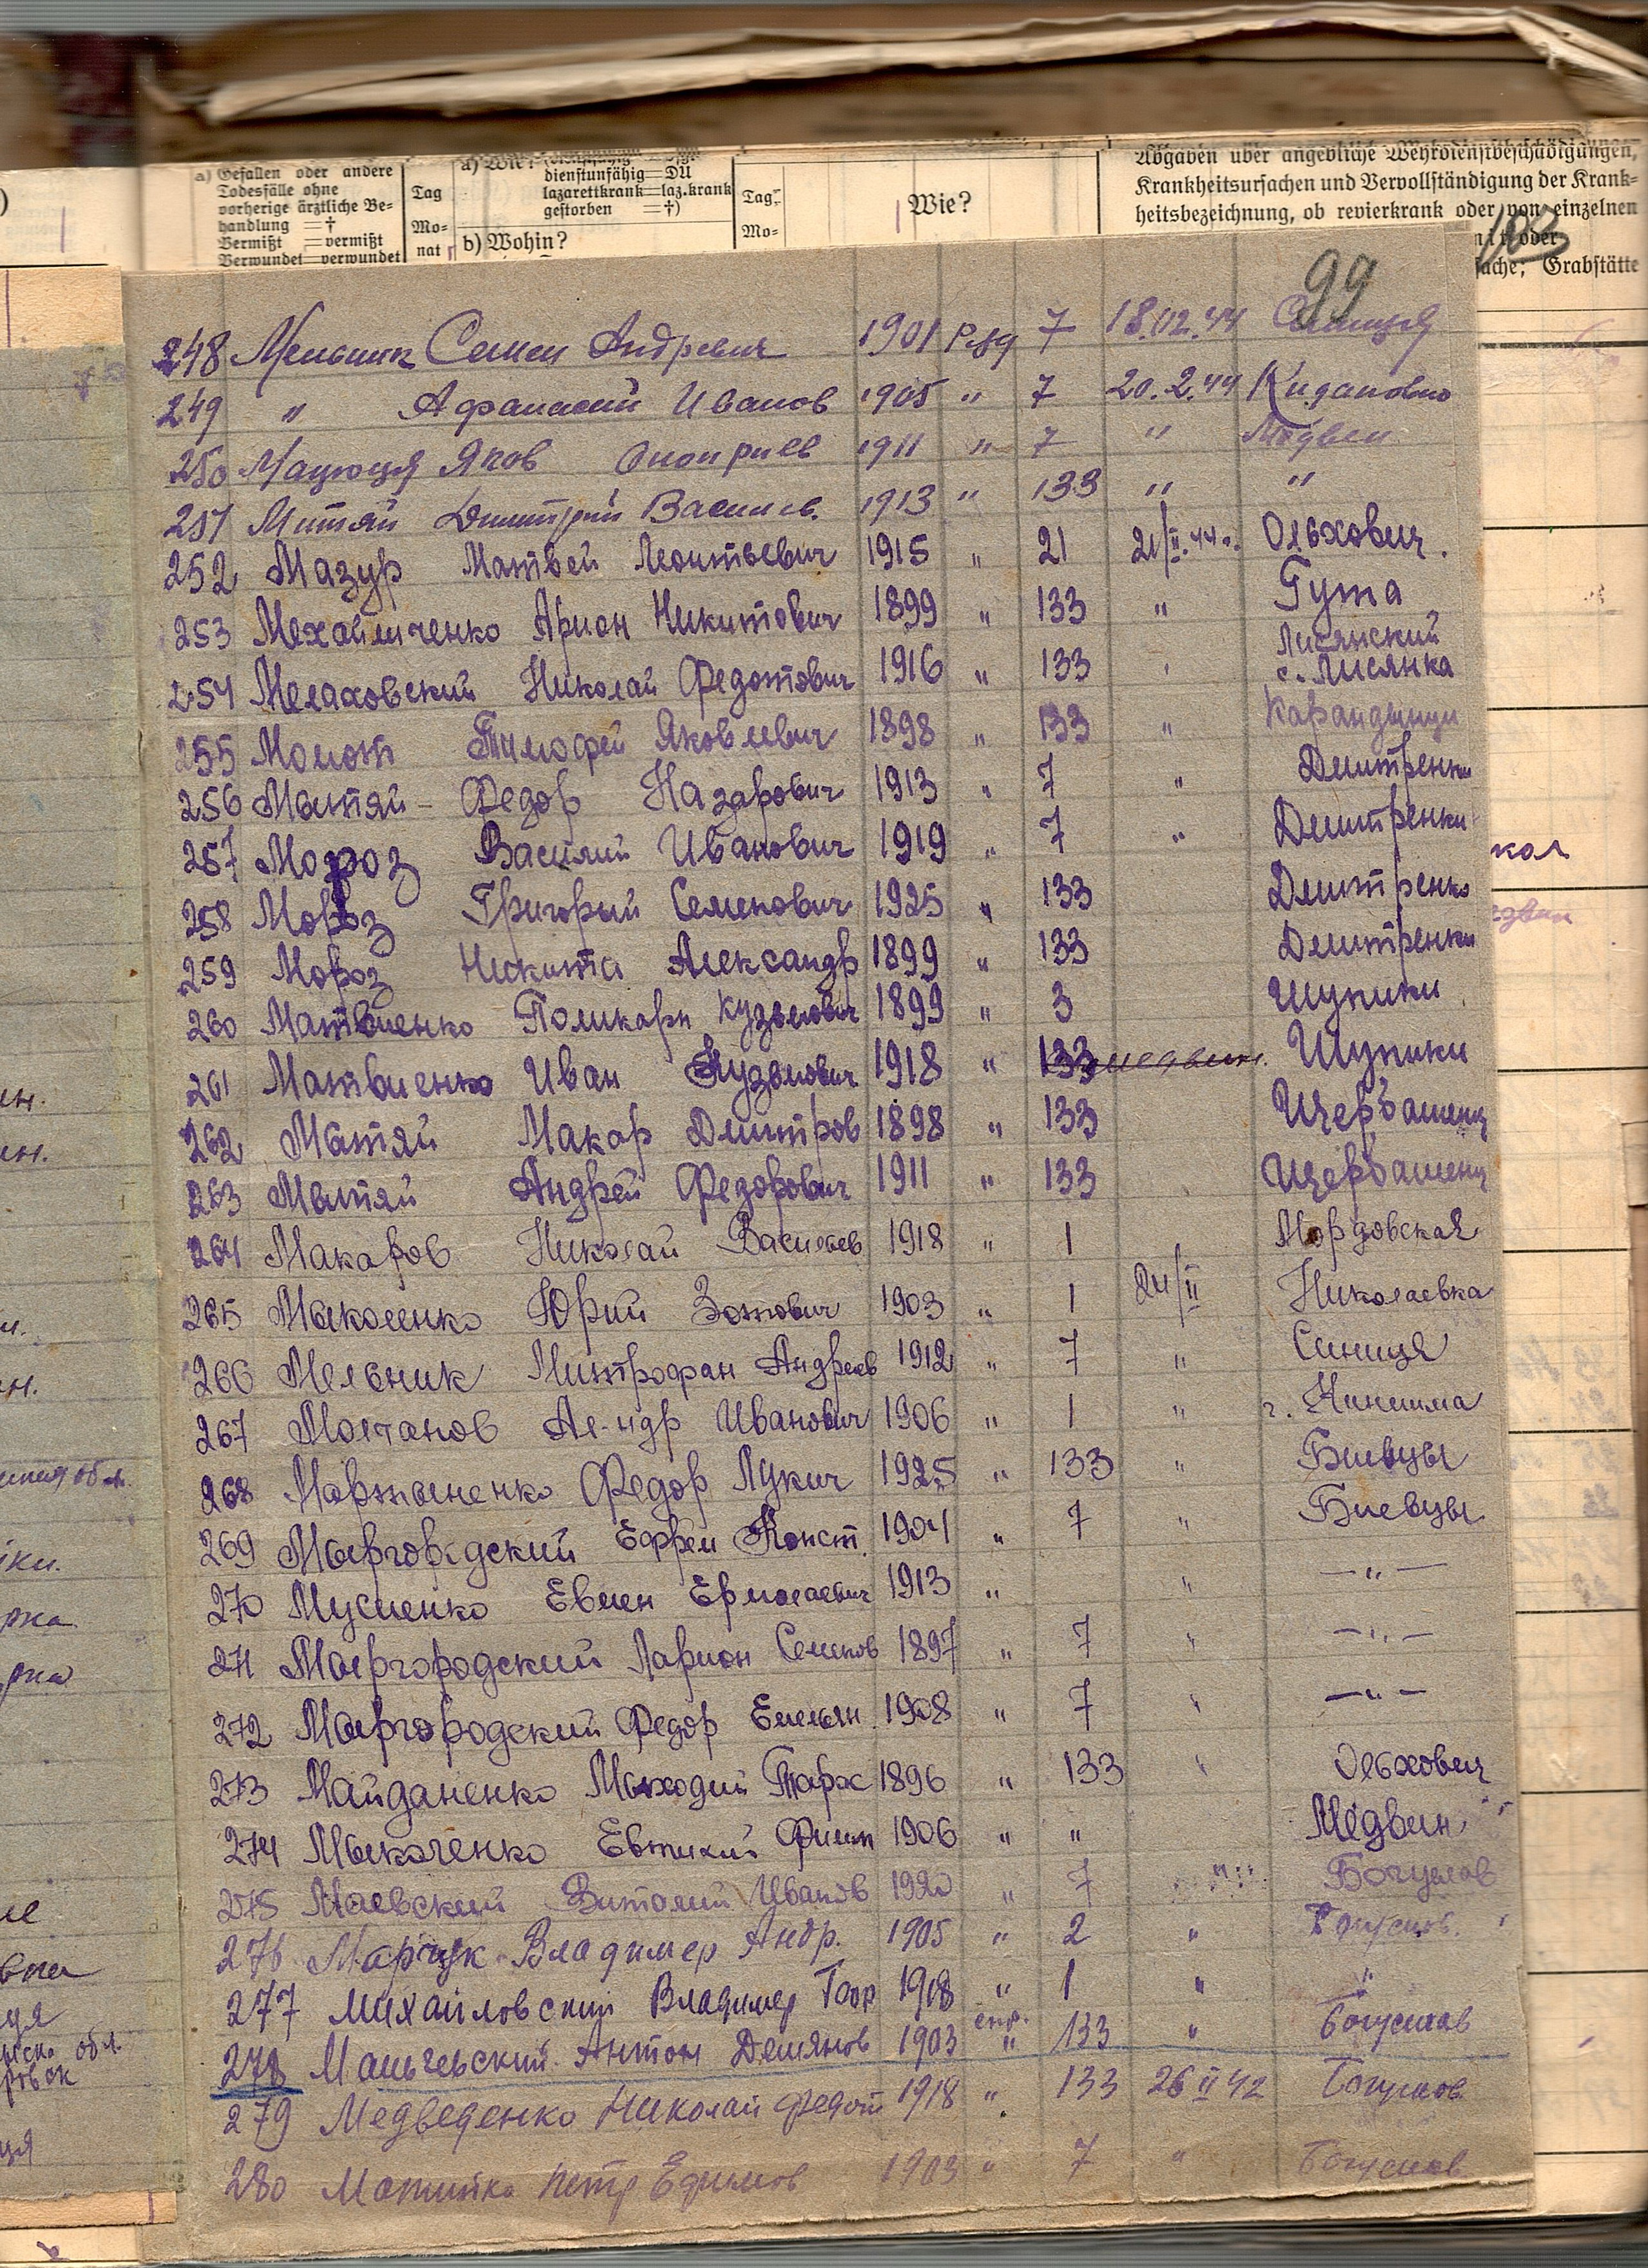 a) Gefallen oder andere
Todesfälle ohne
vorherige ärztliche Be-
handlung = †
Vermißt = vermißt
Verwundet = verwundet
Tag
Mo-
nat
a) Wie?
dienstunfähig = DU
lazarettkrank = laz.krank
gestorben = †)
b) Wohin?
Tag
Mo-
Wie?
Abgaben über angebliche Wehrdienstbeschädigungen,
Krankheitsursachen und Vervollständigung der Krank-
heitsbezeichnung, ob revierkrank oder von einzelnen
oder
Grabstätte
103
99
248 Мельник Семен Андревич 1901 Ряд 7 18.02.44 Синиця
249 " Афанасий Иванов 1905 " 7 20.2.44
250 Мацюця Яков Оноприев 1911 " 7 " Медвен
251 Митяй Дмитрий Васильев. 1913 " 133 " "
252 Мазур Матвей Леонтьевич 1915 " 21 21/II.44г. Ольхович.
253 Михайличенко Арион Никитович 1899 " 133 " Гута
254 Мелаховский Николай Федотович 1916 " 133 " Лисянский с. Лисянка
255 Момот Тимофей Яковлевич 1898 " 133 "
256 Мытяй Федор Назарович 1913 " 7 " Дмитренки
257 Мороз Василий Иванович 1919 " 7 " Дмитренки
258 Мороз Григорий Семенович 1925 " 133 Дмитренко
259 Мороз Никита Александр 1899 " 133 Дмитренки
260 Матвиенко Поликарп Кузьмович 1899 " 3 Шупики
261 Матвиенко Иван Кузьмович 1918 " 133 Шупики
262 Мытяй Макар Дмитров 1898 " 133 Щербашенц
263 Мытяй Андрей Федорович 1911 " 133 Щербашенц
264 Макаров Николай Васильев 1918 " 1 Мордовская
265 Мыколенко Юрий Зотович 1903 " 1 24/II Николаевка
266 Мельник Митрофан Андреев 1912 " 7 " Синиця
267 Молчанов Ал-ндр Иванович 1906 " 1 " г. Кинишма
268 Мартыненко Федор Лукич 1925 " 133 " Биевцы
269 Мыргородский Ефрем Конст. 1904 " 7 " Биевцы
270 Мусиенко Евмен Ермолаевич 1913 " " —"—
271 Мыргородский Ларион Семенов 1897 " 7 " —"—
272 Мыргородский Федор Емельян. 1908 " 7 " —"—
273 Майданенко Мыходий Тарас 1896 " 133 " Ольхович
274 Мыколенко Евтихий Филип 1906 " " Медвин
275 Маевский Виталий Иванов 1920 " 7 " Богуслав
276 Марчук Владимер Андр. 1905 " 2 " Богуслав.
277 Михайловский Владимер Геор 1918 " 1 " "
278 Мальчевский Антон Демянов 1903 " 133 " Богуслав
279 Медведенко Николай Федот 1918 " 133 26 II 42 Богуслав
280 Петр Ефимов 1903 " 7 " Богуслав